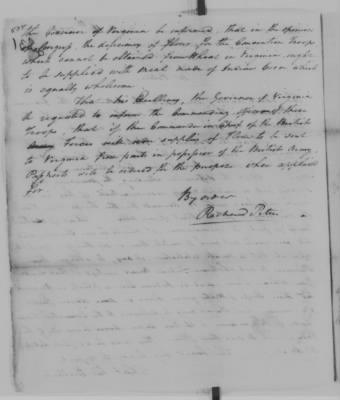 the Governor of Virginia be informed, that in the opinion
of Congress, the deficiency of flour, for the Convention Troops
which cannot be obtained from Wheat in Virginia ought
to be supplied with meal made of Indian Corn which
is equally wholesome.
That his Excellency, the Governor of Virginia
be requested to inform the Commanding of these
Troops, that if the Commander in Chief of the British
Forces supplies of Flour to be sent
to Virginia from parts in possession of the British Army,
Passports will be ordered for the purpose when applied
for
By order
Richard Peters